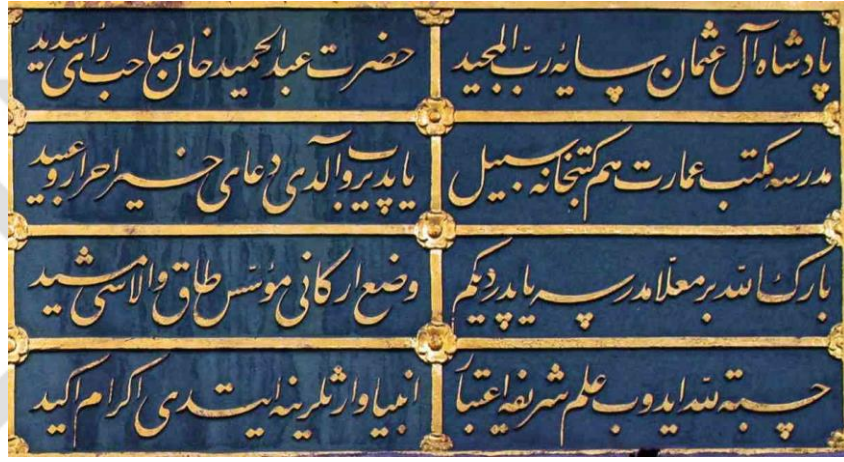 پادشاه آل عثمان سایۀ ربّ المجید
حضرت عبدالحمید خان صاحب رأی سدید
مدرسه مکتب عمارت هم کتبخانه سبیل
یاپدیروب آلدی دعای خیر احرار و عبید
بارك الله بر معلّا مدرسه یاپدردیکم
وضع ارکانی مؤسّس طاق والاسی مشید
حسبةً لله ایدوب علم شریفه اعتبار
انبیا وارثلرینه ایتدی اکرام اکید